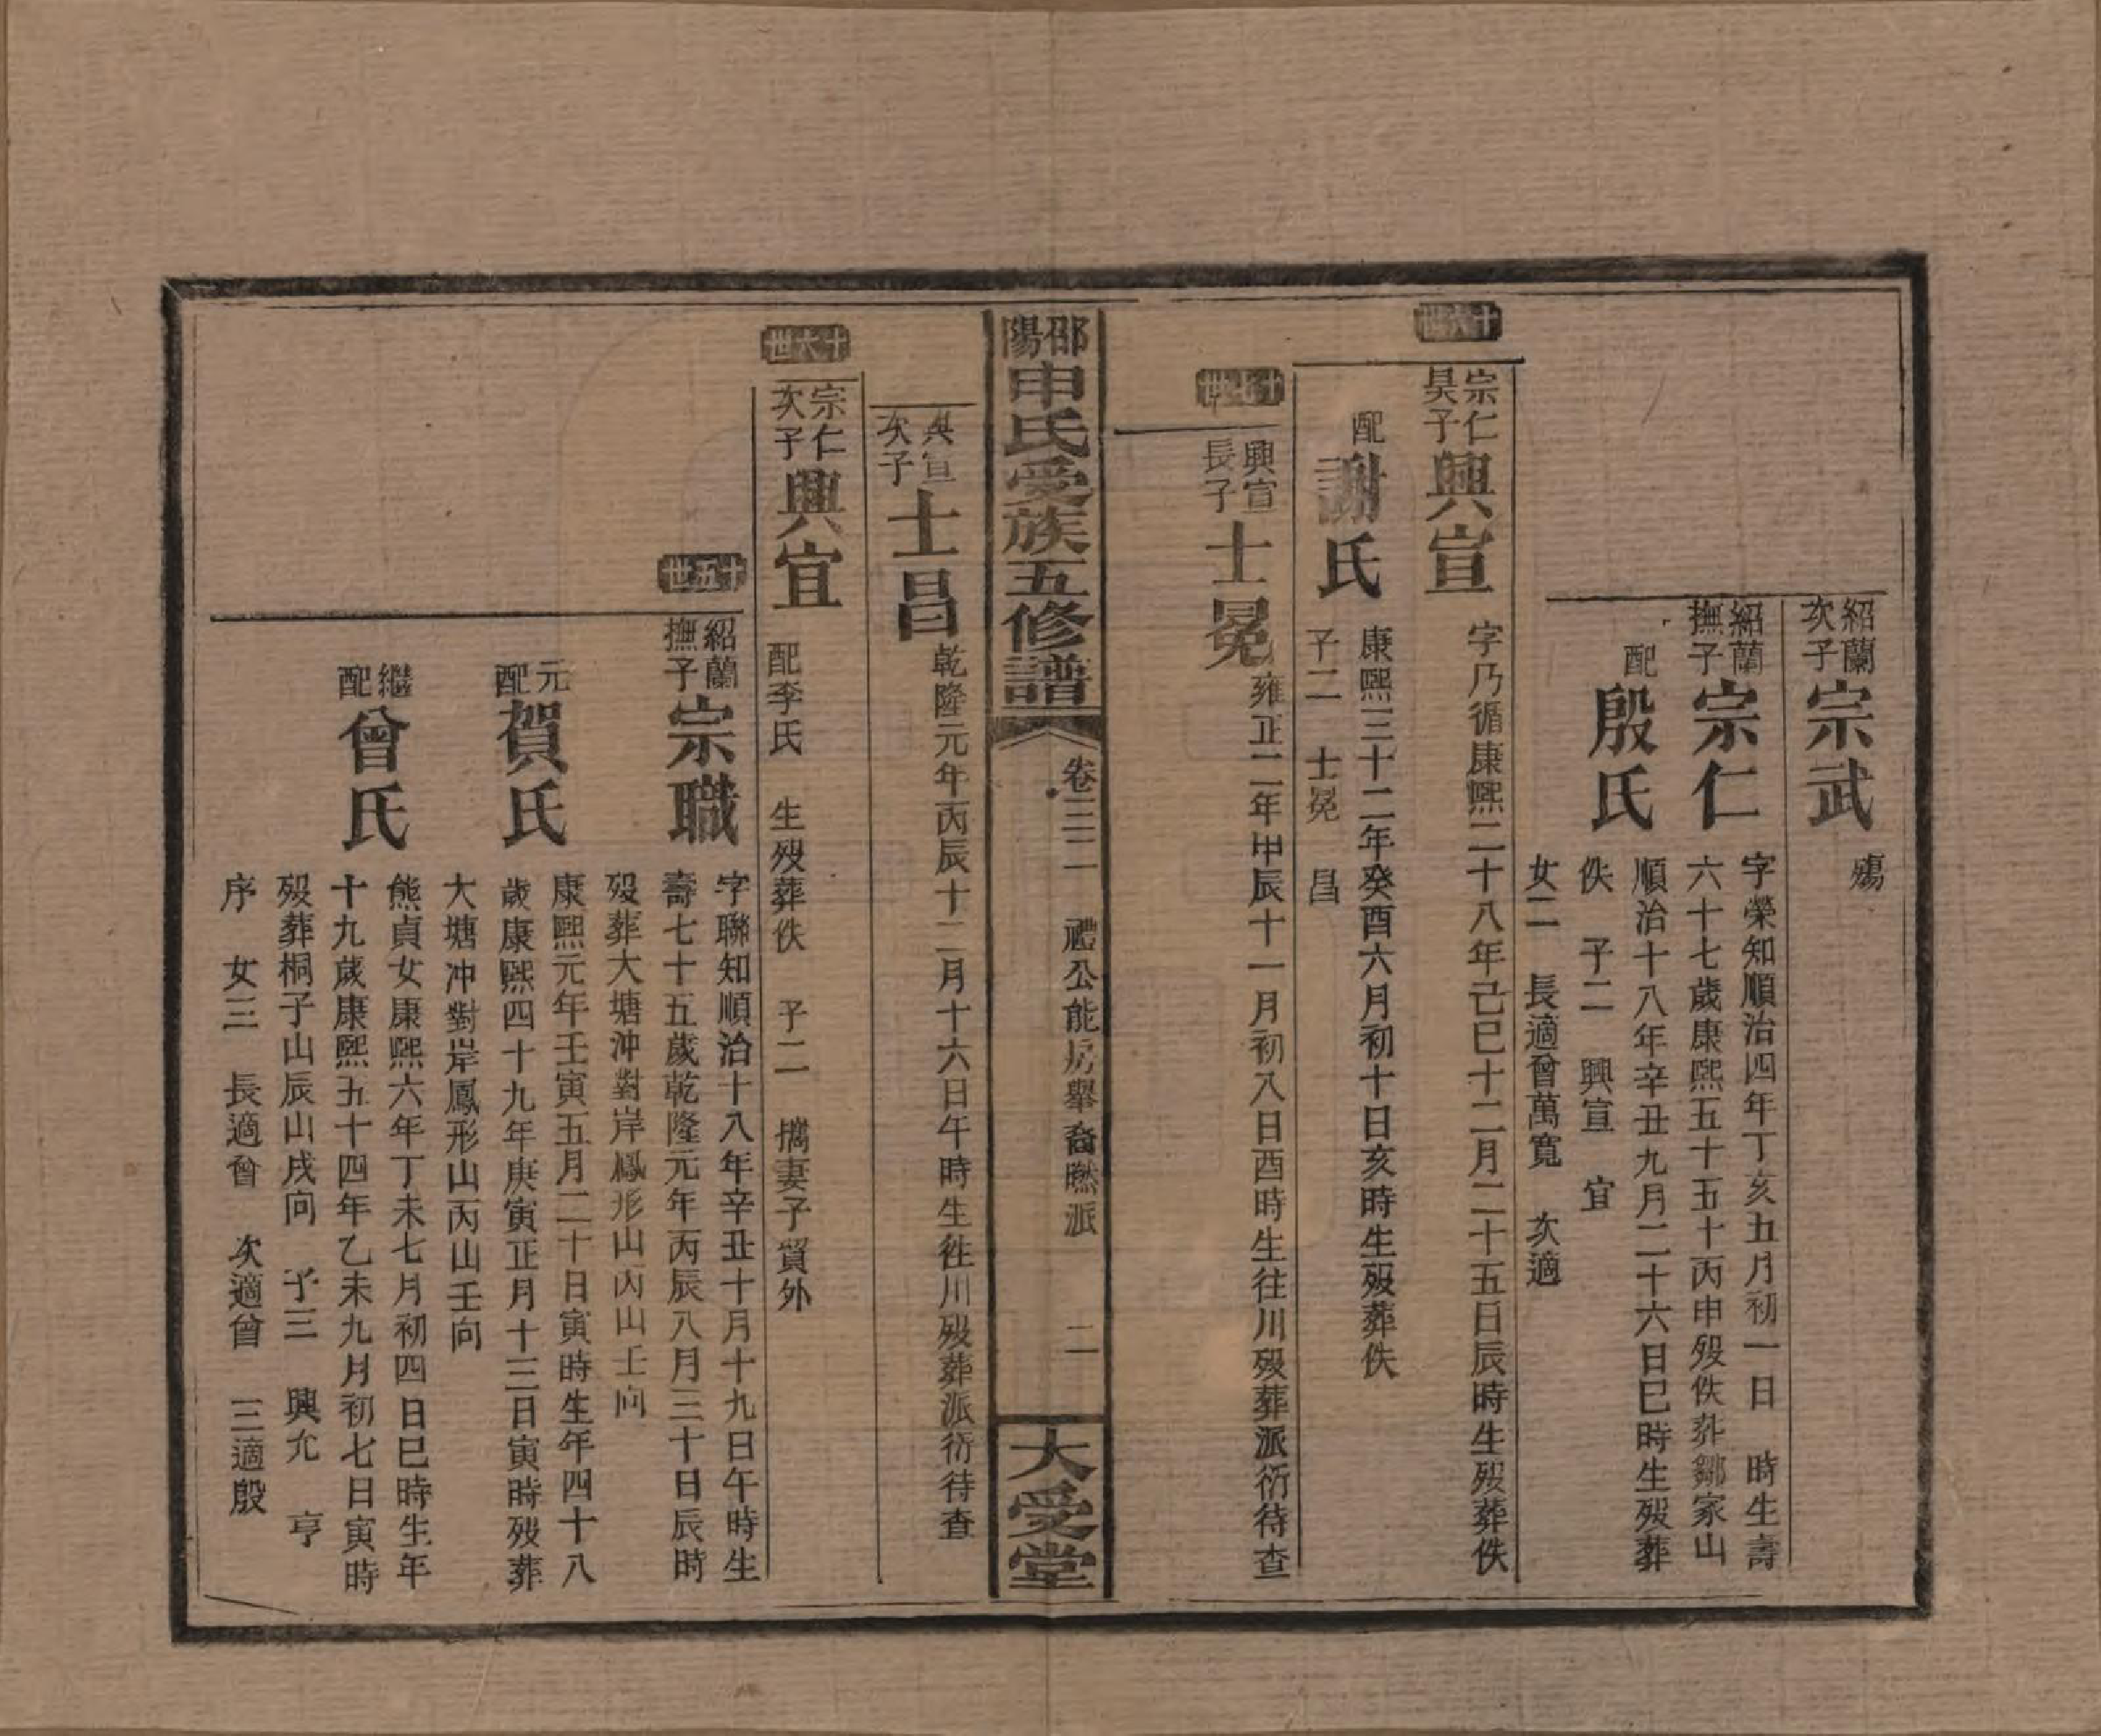 紹蘭次子 宗武 殤
紹蘭撫子 宗仁 字榮知順治四年丁亥五月初一日 時生壽
六十七歲康熙五十五十丙申歿佚葬鄒家山
配殷氏 順治十八年辛丑九月二十六日巳時生歿葬
佚 子二 興宣 宜
女二 長適曾萬寬 次適
十六世
宗仁長子 興宣 字乃循康熙二十八年己巳十二月二十五日辰時生歿葬佚
配謝氏 康熙三十二年癸酉六月初十日亥時生歿葬佚
子二 士冕 昌
十七世
興宣長子 士冕 雍正二年甲辰十一月初八日酉時生往川歿葬派衍待查
邵陽申氏受族五修譜 卷三二 禮公能房舉裔燃派 二 大受堂
興宣次子 士昌 乾隆元年丙辰十二月十六日午時生往川歿葬派衍待查
十六世
宗仁次子 興宜 配李氏 生歿葬佚 子二 攜妻子貿外
十五世
紹蘭撫子 宗職 字聯知順治十八年辛丑十月十九日午時生
壽七十五歲乾隆元年丙辰八月三十日辰時
歿葬大塘沖對岸鳳形山丙山壬向
元配賀氏 康熙元年壬寅五月二十日寅時生年四十八
歲康熙四十九年庚寅正月十三日寅時歿葬
大塘沖對岸鳳形山丙山壬向
繼配曾氏 熊貞女康熙六年丁未七月初四日巳時生年
十九歲康熙五十四年乙未九月初七日寅時
歿葬桐子山辰山戌向 子三 興允 亨
序 女三 長適曾 次適曾 三適殷